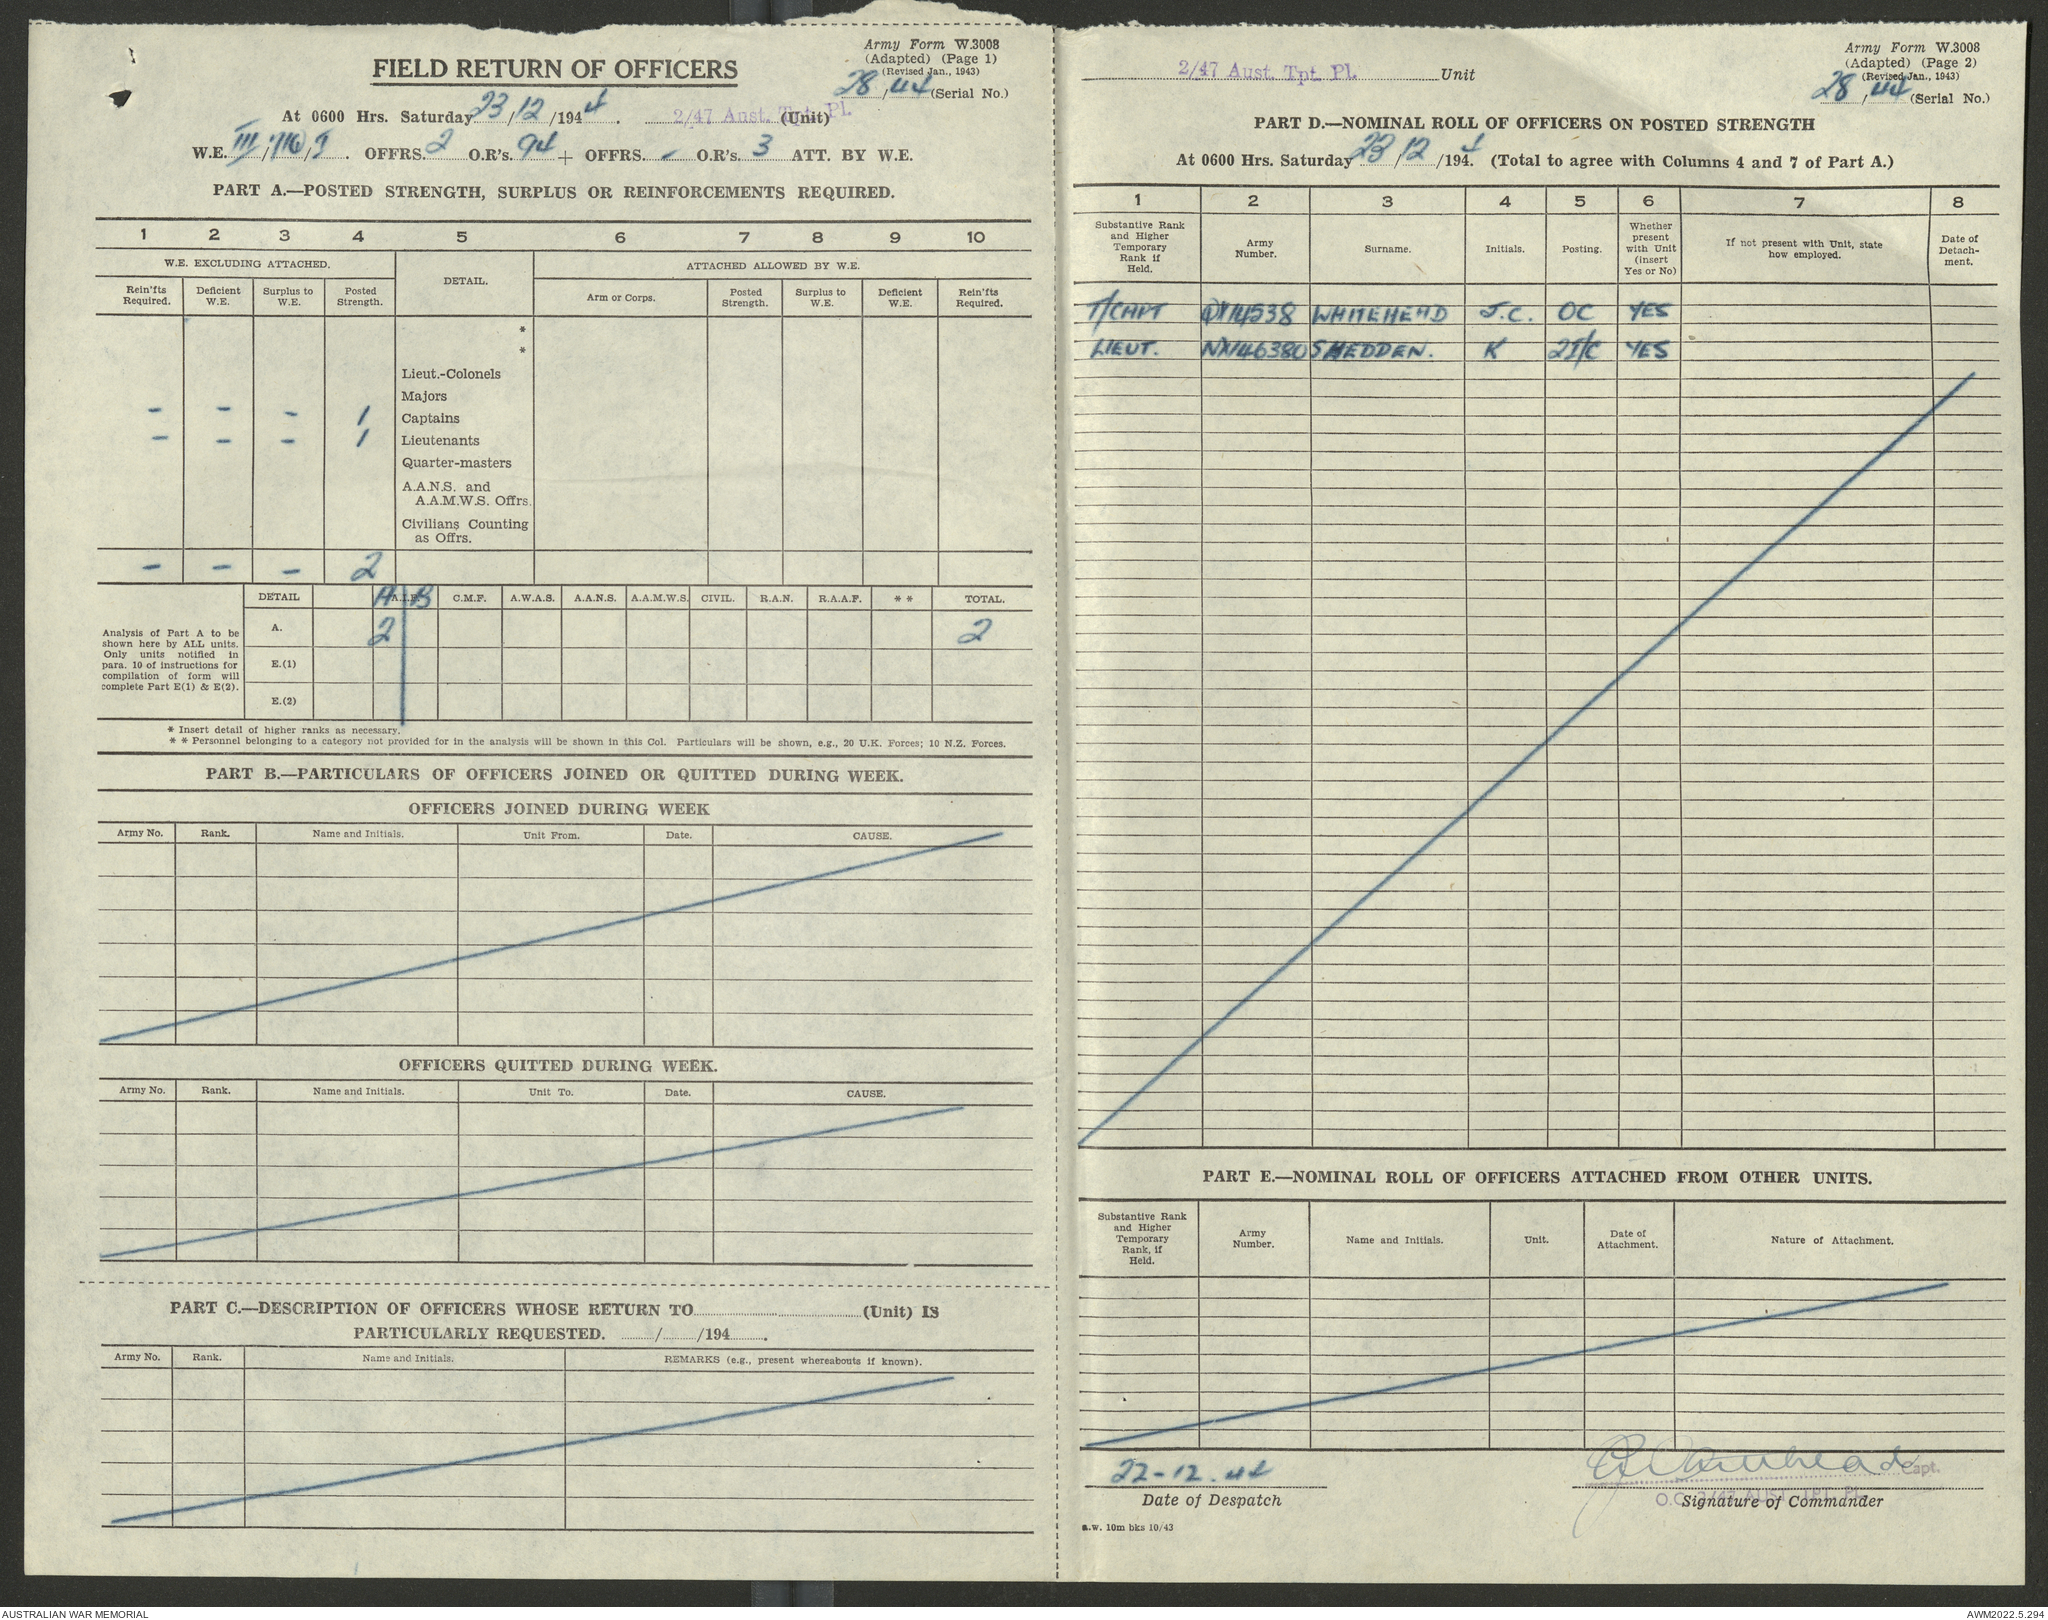 Army Form W.3008
(Adapted) (Page 1)
(Revised Jan., 1943)
28/44 (Serial No.)
FIELD RETURN OF OFFICERS
At 0600 Hrs. Saturday 23/12/1944. 2/47 Aust. Tpt. Pl. (Unit)
W.E. III/716/I. OFFRS. 2 O.R's. 94 + OFFRS. - O.R's. 3 ATT. BY W.E.
PART A.—POSTED STRENGTH, SURPLUS OR REINFORCEMENTS REQUIRED.
1 2 3 4 5 6 7 8 9 10
W.E. EXCLUDING ATTACHED. DETAIL. ATTACHED ALLOWED BY W.E.
Rein'fts Required. Deficient W.E. Surplus to W.E. Posted Strength. Arm or Corps. Posted Strength. Surplus to W.E. Deficient W.E. Rein'fts Required.
*
*
Lieut.-Colonels
Majors
- - - 1 Captains
- - - 1 Lieutenants
Quarter-masters
A.A.N.S. and
A.A.M.W.S. Offrs.
Civilians Counting
as Offrs.
- - - 2
DETAIL A A.I.F. B C.M.F. A.W.A.S. A.A.N.S. A.A.M.W.S. CIVIL. R.A.N. R.A.A.F. * * TOTAL.
Analysis of Part A to be
shown here by ALL units.
Only units notified in
para. 10 of instructions for
compilation of form will
complete Part E(1) & E(2).
A. 2 2
E.(1)
E.(2)
* Insert detail of higher ranks as necessary.
* * Personnel belonging to a category not provided for in the analysis will be shown in this Col. Particulars will be shown, e.g., 20 U.K. Forces; 10 N.Z. Forces.
PART B.—PARTICULARS OF OFFICERS JOINED OR QUITTED DURING WEEK.
OFFICERS JOINED DURING WEEK
Army No. Rank. Name and Initials. Unit From. Date. CAUSE.
OFFICERS QUITTED DURING WEEK.
Army No. Rank. Name and Initials. Unit To. Date. CAUSE.
PART C.—DESCRIPTION OF OFFICERS WHOSE RETURN TO (Unit) IS
PARTICULARLY REQUESTED. / /194 .
Army No. Rank. Name and Initials. REMARKS (e.g., present whereabouts if known).
Army Form W.3008
(Adapted) (Page 2)
(Revised Jan., 1943)
28/44 (Serial No.)
2/47 Aust. Tpt. Pl. Unit
PART D.—NOMINAL ROLL OF OFFICERS ON POSTED STRENGTH
At 0600 Hrs. Saturday 23/12/1944. (Total to agree with Columns 4 and 7 of Part A.)
1 2 3 4 5 6 7 8
Substantive Rank and Higher Temporary Rank if Held. Army Number. Surname. Initials. Posting. Whether present with Unit (insert Yes or No) If not present with Unit, state how employed. Date of Detach-ment.
T/CAPT QX14538 WHITEHEAD J.C. OC YES
LIEUT. NX146380 SHEDDEN. K 2I/C YES
PART E.—NOMINAL ROLL OF OFFICERS ATTACHED FROM OTHER UNITS.
Substantive Rank and Higher Temporary Rank, if Held. Army Number. Name and Initials. Unit. Date of Attachment. Nature of Attachment.
22-12-44
Date of Despatch
Whitehead Capt.
O.C. 2/47 AUST. TPT. PL.
Signature of Commander
a.w. 10m bks 10/43
AUSTRALIAN WAR MEMORIAL
AWM2022.5.294